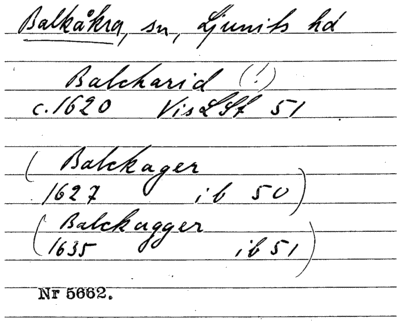 Balkåkra, sn, Ljunits hd
Balckarid (!)
c.1620 VisLSt 51
(Balckager
1627 ib 50)
(Balckagger
1635 ib 51)
Nr 5662.